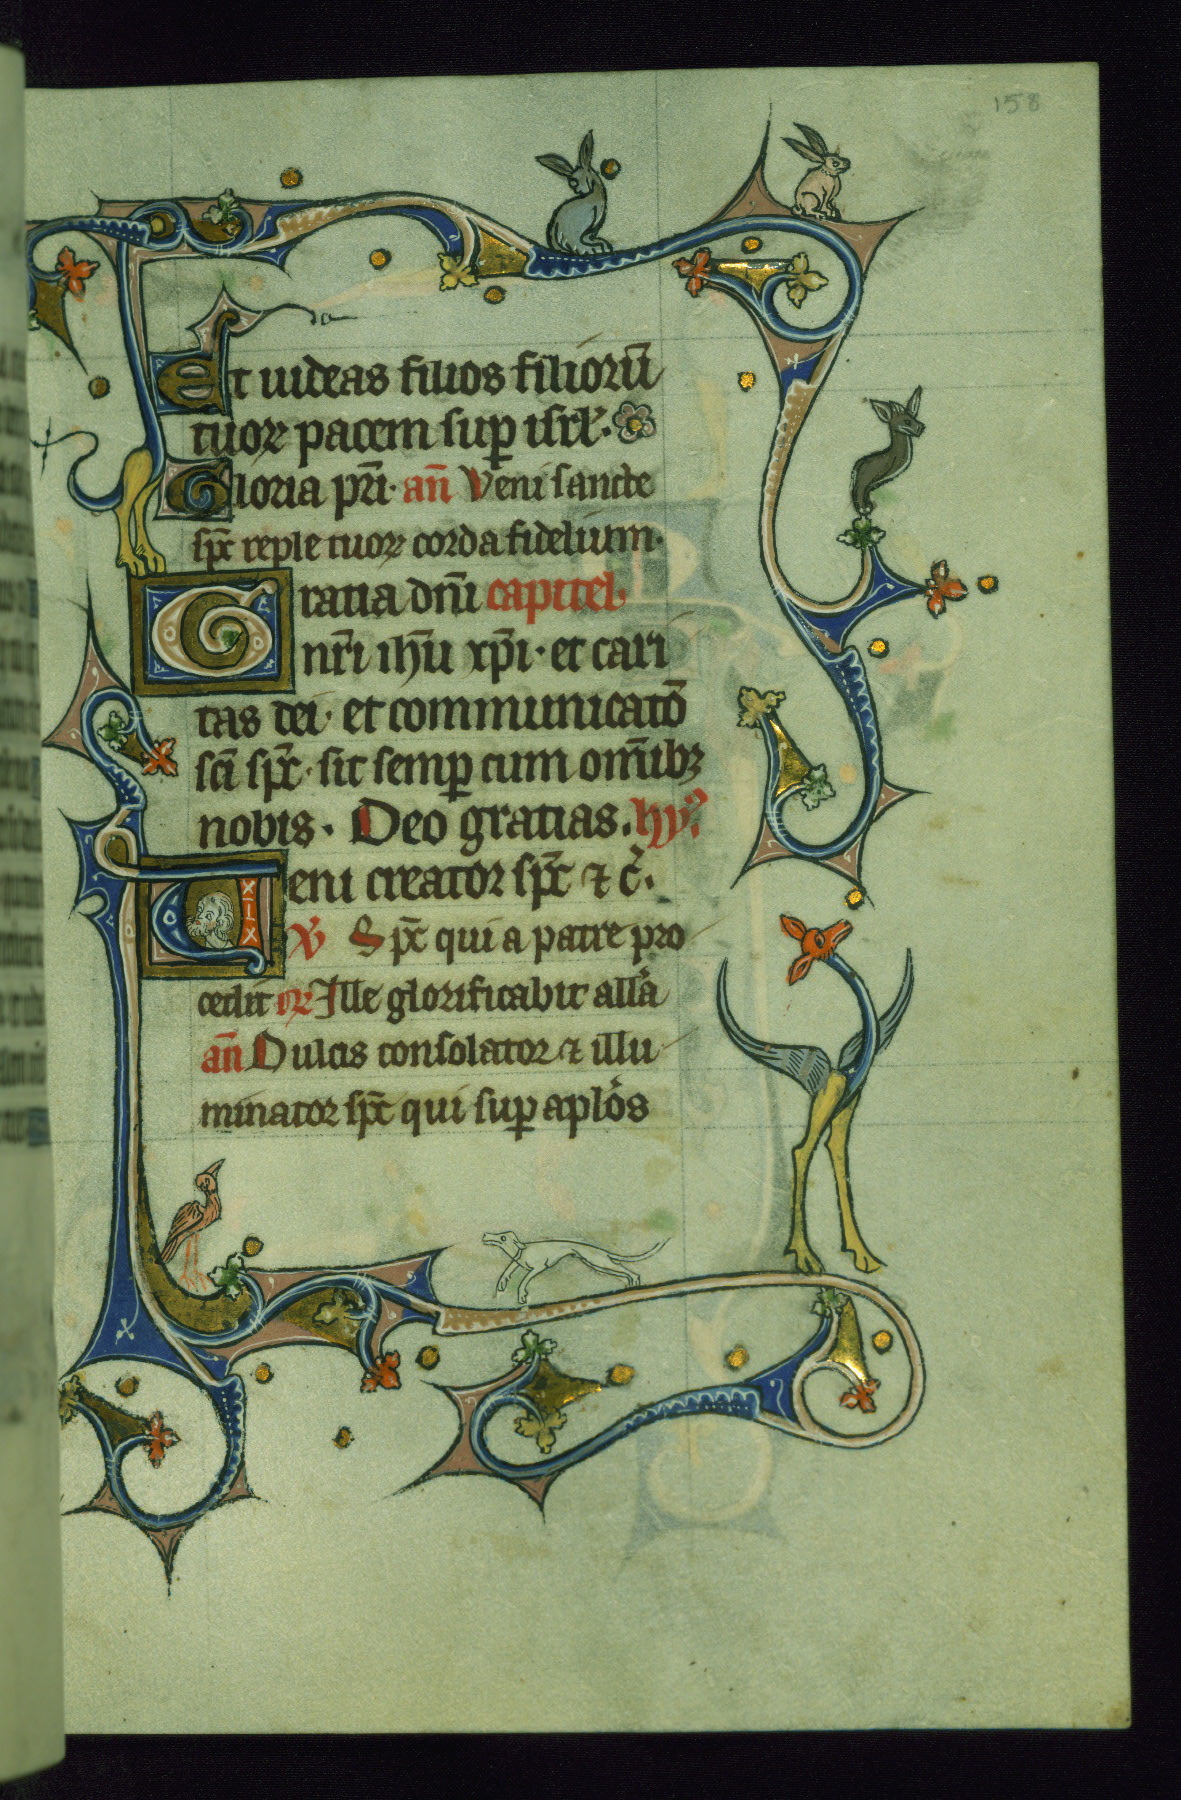 158
Et uideas filios filiorū
tuoꝝ pacem suꝑ isrl̄.
Gloria pr̄i. an̄ Veni sancte
sp̄c reple tuoꝝ corda fidelium.
Gratia dn̄i capitel
nr̄i ih̄u xp̄i. et cari
tas dei. et communicatō
sc̄i sp̄c. sit semꝑ cum om̄ibꝫ
nobis. Deo gratias. hyꝰ
Veni creator sp̄c ⁊ c̄.
℣ Sp̄c qui a patre pro
cedit ꝶ Ille glorificabit all̄a
an̄ Dulcis consolator ⁊ illu
minator sp̄c qui suꝑ apl̄os